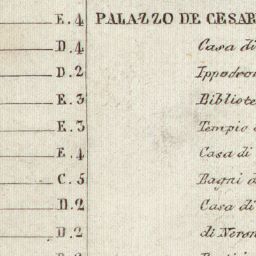 E. 4 PALAZZO DE CESAR
D. 4 Casa di
D. 2 Ippodro
E. 3 Bibliote
E. 3 Tempio
E. 4 Casa di
C. 5 Bagni d
D. 2 Casa di
D. 2 di Neron